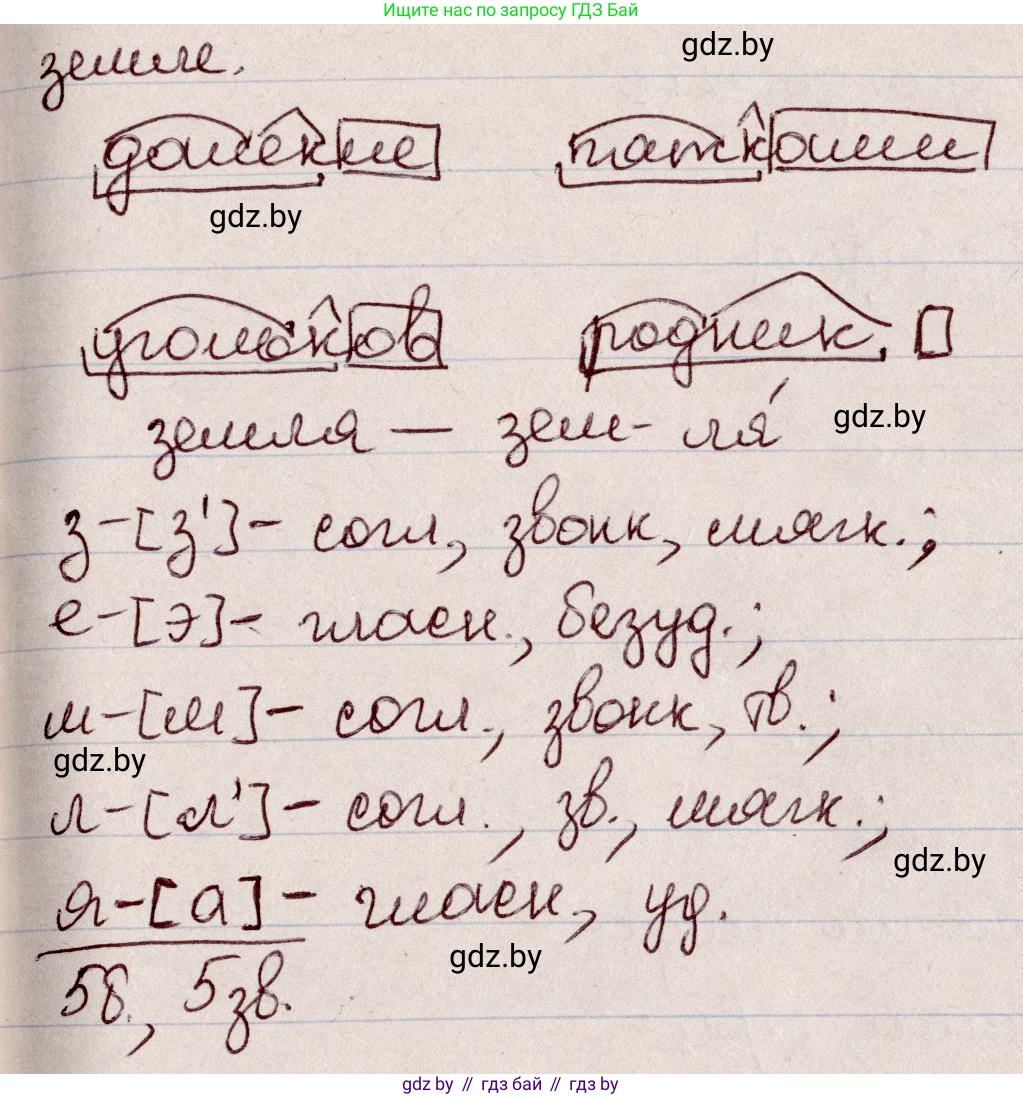 Ищите нас по запросу ГДЗ Бай
gdz.by
земле.
далёкие пятками
gdz.by
угольков родник
земля — зем- ля́
gdz.by
з-[з']- согл, звонк, мягк.;
е-[э]- гласн., безуд.;
м-[м]- согл., звонк, тв.;
gdz.by
л-[л']- согл., зв., мягк.;
gdz.by
я-[а]- гласн., уд.
gdz.by
5б., 5зв.
gdz.by // гдз бай // gdz.by